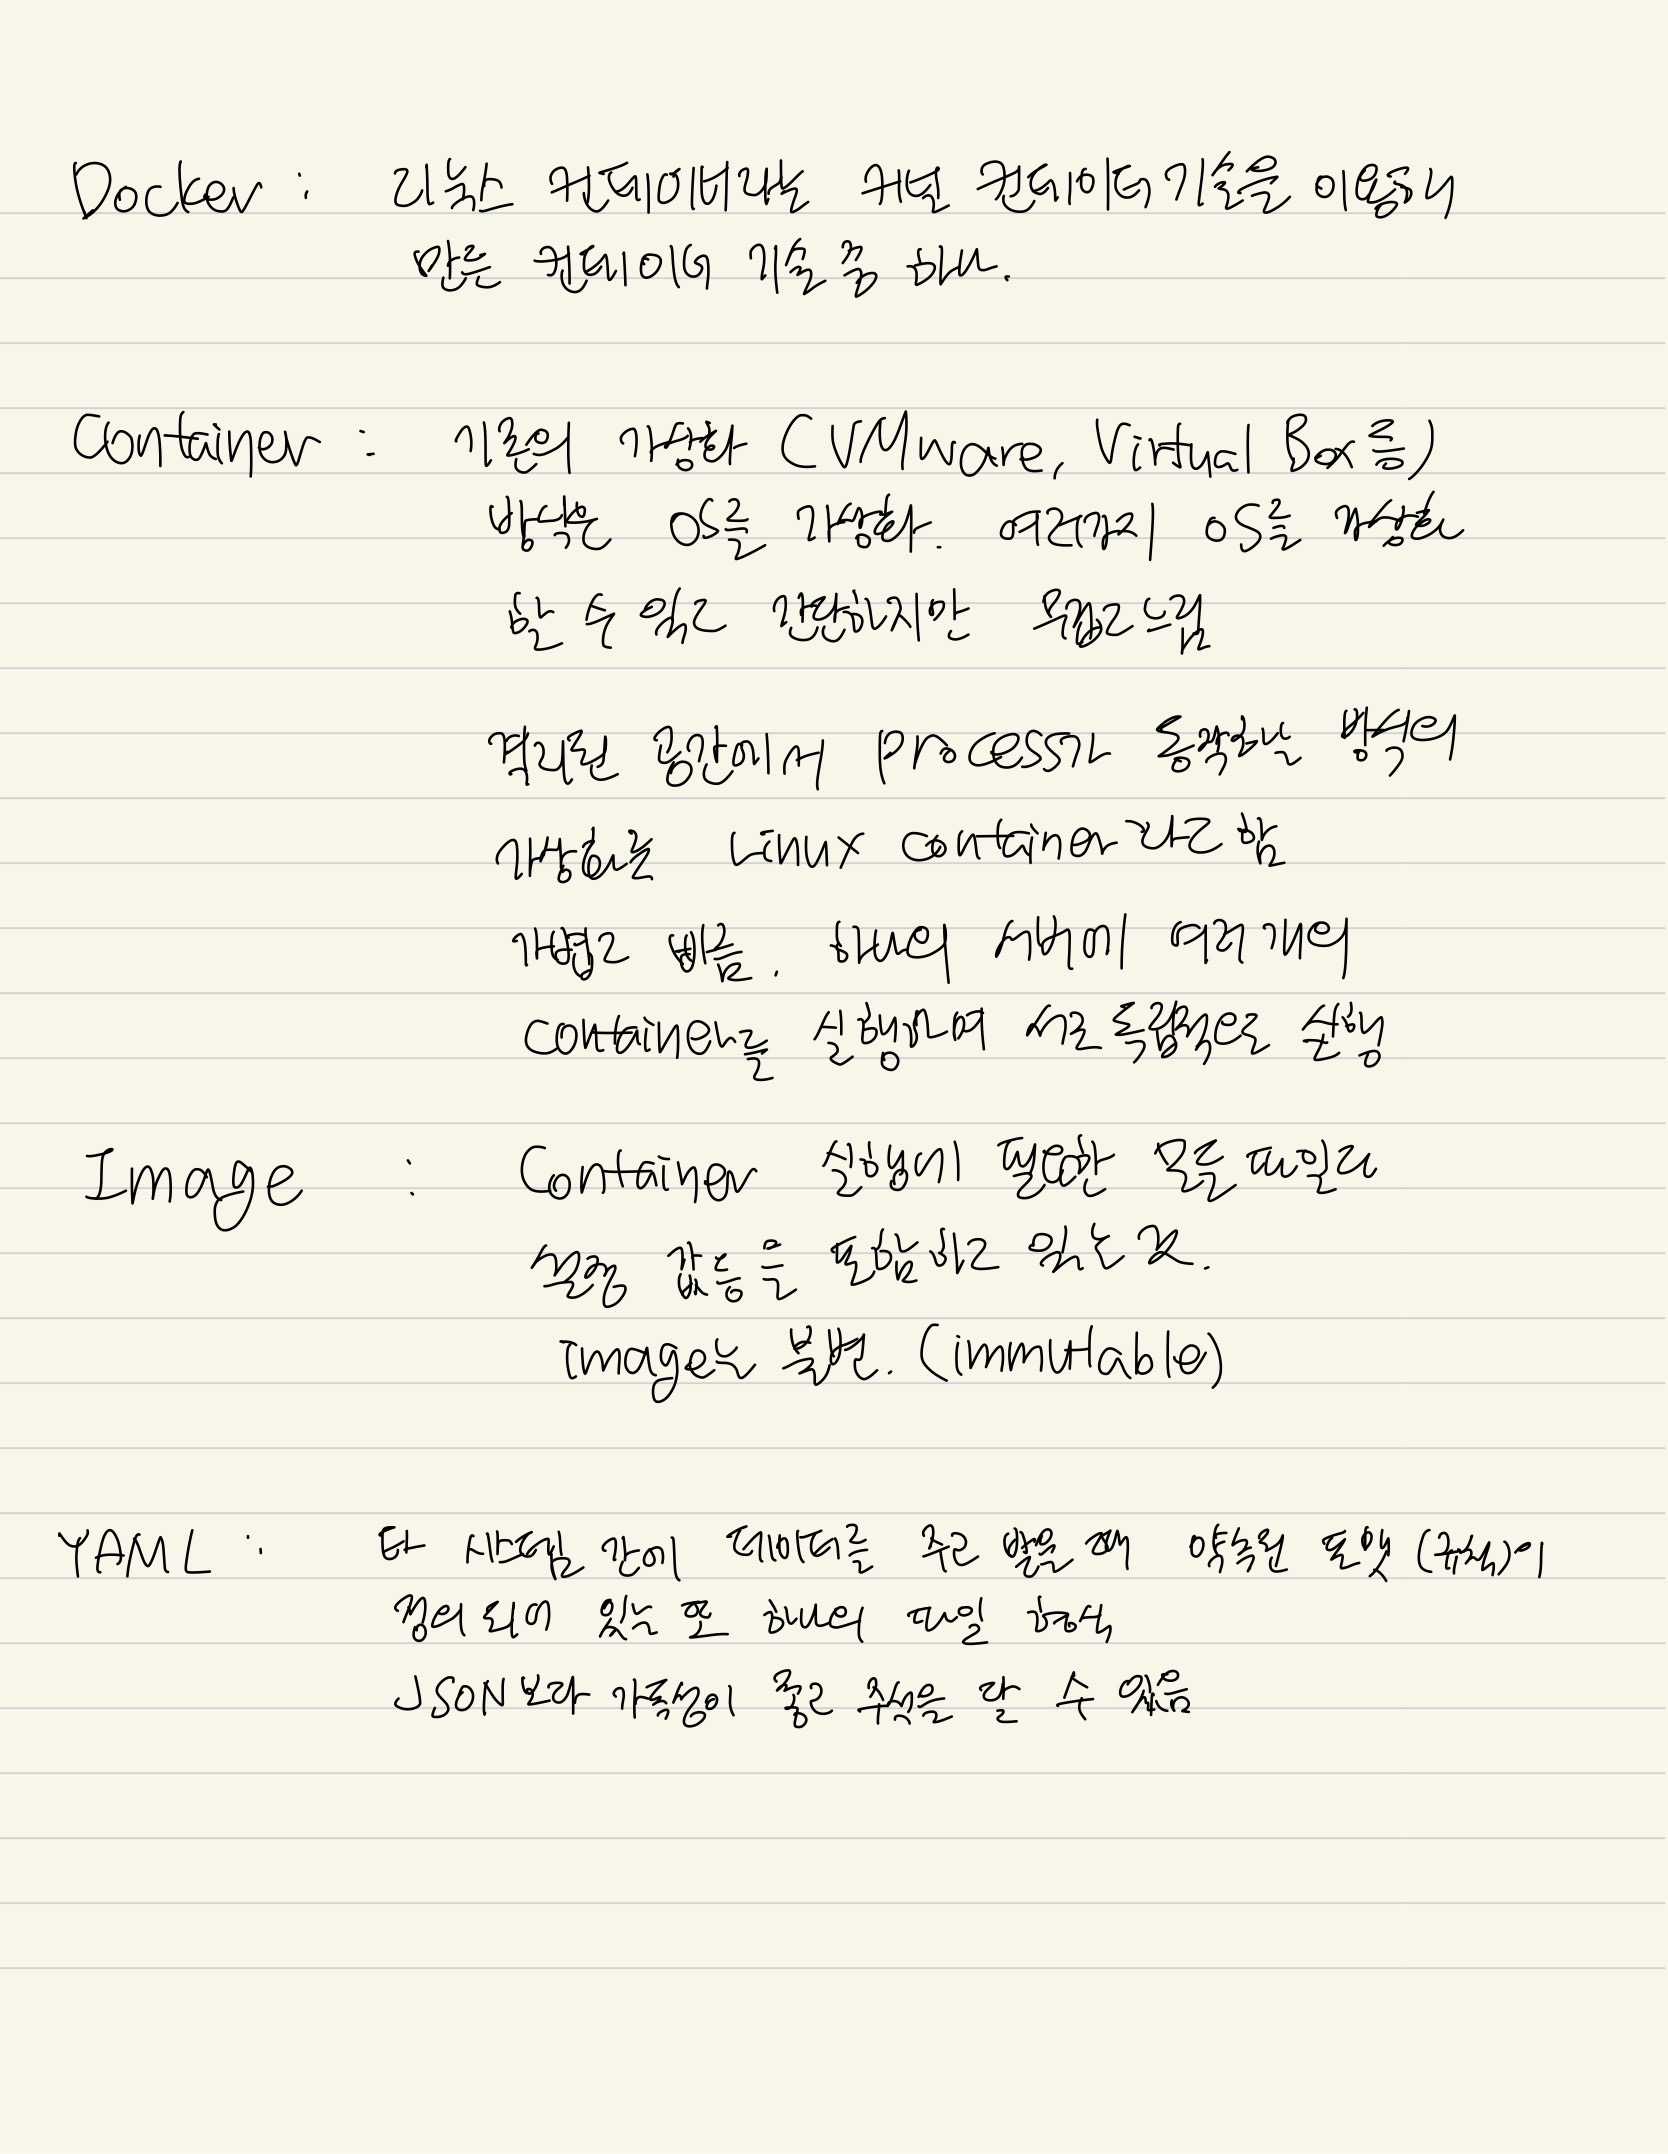 Docker : 리눅스 컨테이너라는 커널 컨테이너 기술을 이용하여
만든 컨테이너 기술 중 하나.
Container : 기존의 가상화 (VMware, Virtual Box 등)
방식은 OS를 가상화. 여러가지 OS를 가상화
할 수 있고 간단하지만 무겁고 느림
격리된 공간에서 process가 동작하는 방식의
가상화는 Linux container라고 함
가볍고 빠름. 하나의 서버에 여러 개의
container를 실행하여 서로 독립적으로 실행
Image : Container 실행에 필요한 모든 파일과
설정 값 등을 포함하고 있는 것.
Image는 불변. (immutable)
YAML : 타 시스템 간에 데이터를 주고 받을 때 약속된 포맷 (규칙)이
정의되어 있는 또 하나의 파일 형식
JSON보다 가독성이 좋고 주석을 달 수 있음